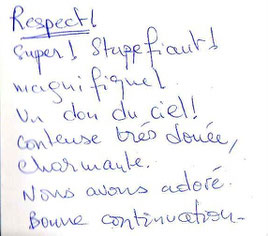 Respect!
Super! Stupéfiant!
magnifique!
Un don du ciel!
Conteuse très douée,
charmante.
Nous avons adoré.
Bonne continuation-